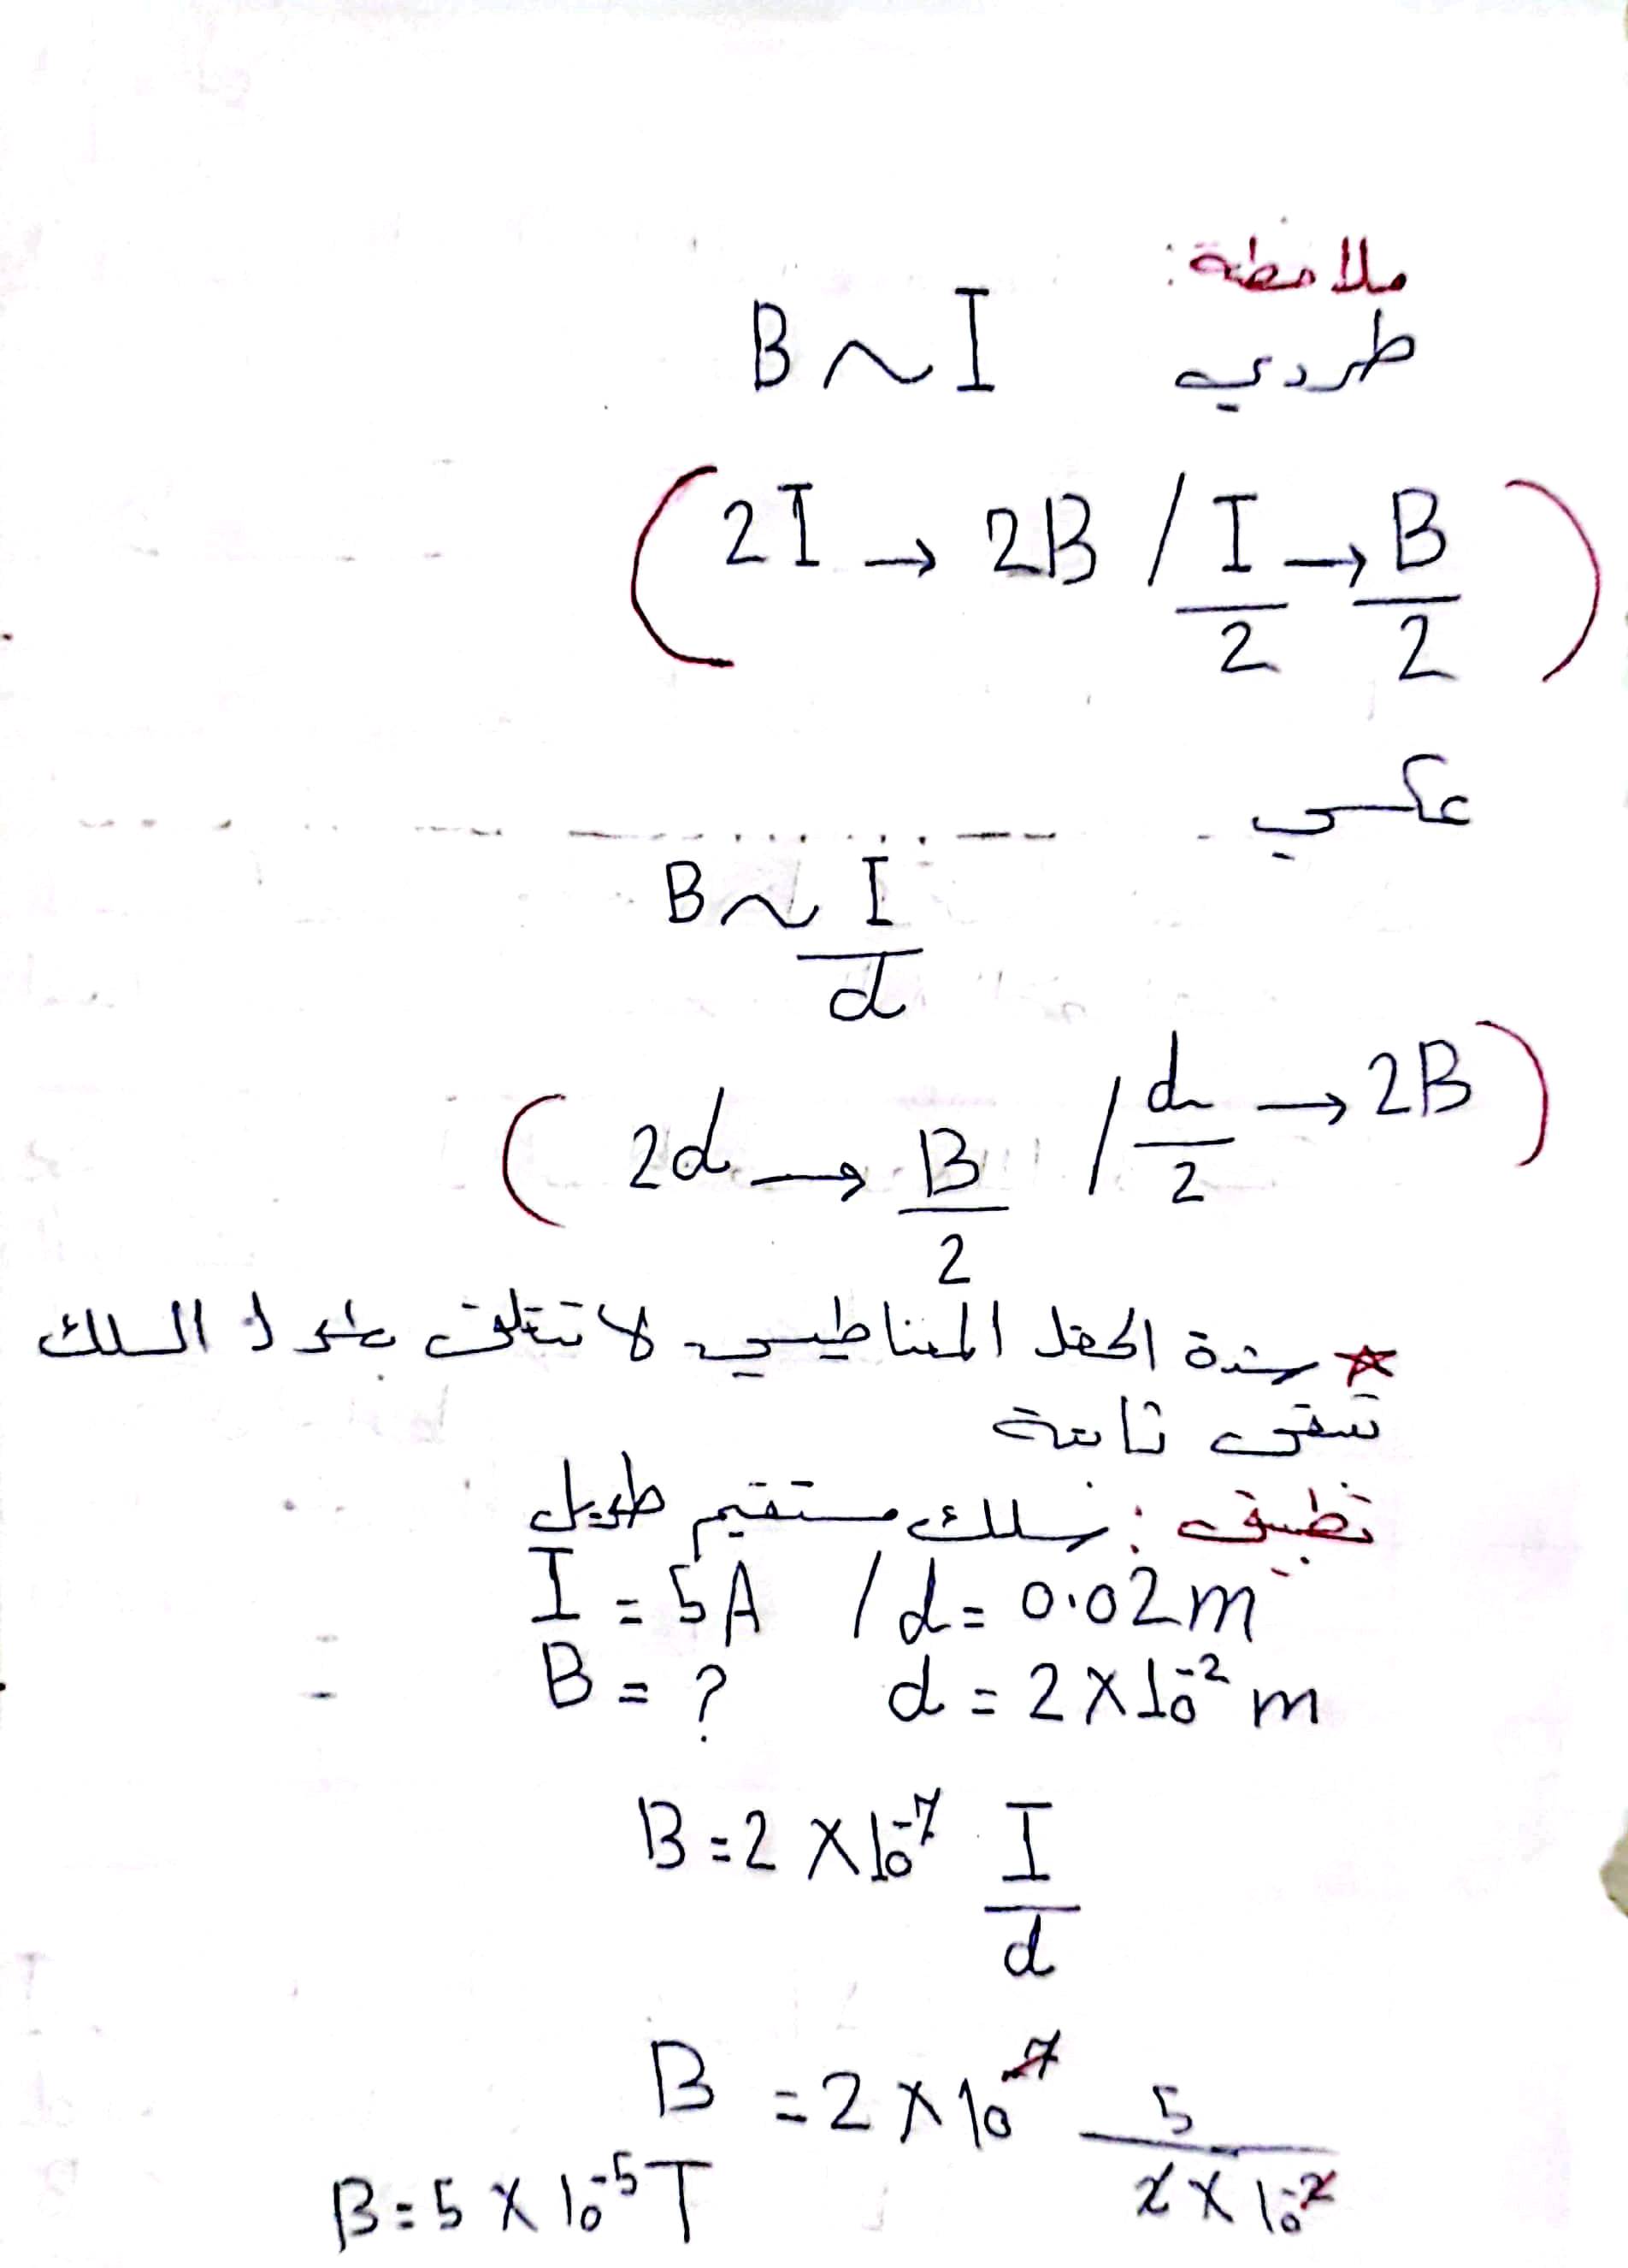 ملاحظة:
طردي B ~ I
(2I → 2B / I/2 → B/2)
عكسي
B ~ I/d
(2d → B/2 / d/2 → 2B)
☆ شدة الحقل المغناطيسي لا تتعلق بقطر السلك
تبقى ثابتة
تطبيق: سلك مستقيم طويل
I = 5A / d = 0.02m
B = ? d = 2 × 10^-2 m
B = 2 × 10^-7 I/d
B = 2 × 10^-7 5/(2 × 10^-2)
B = 5 × 10^-5 T